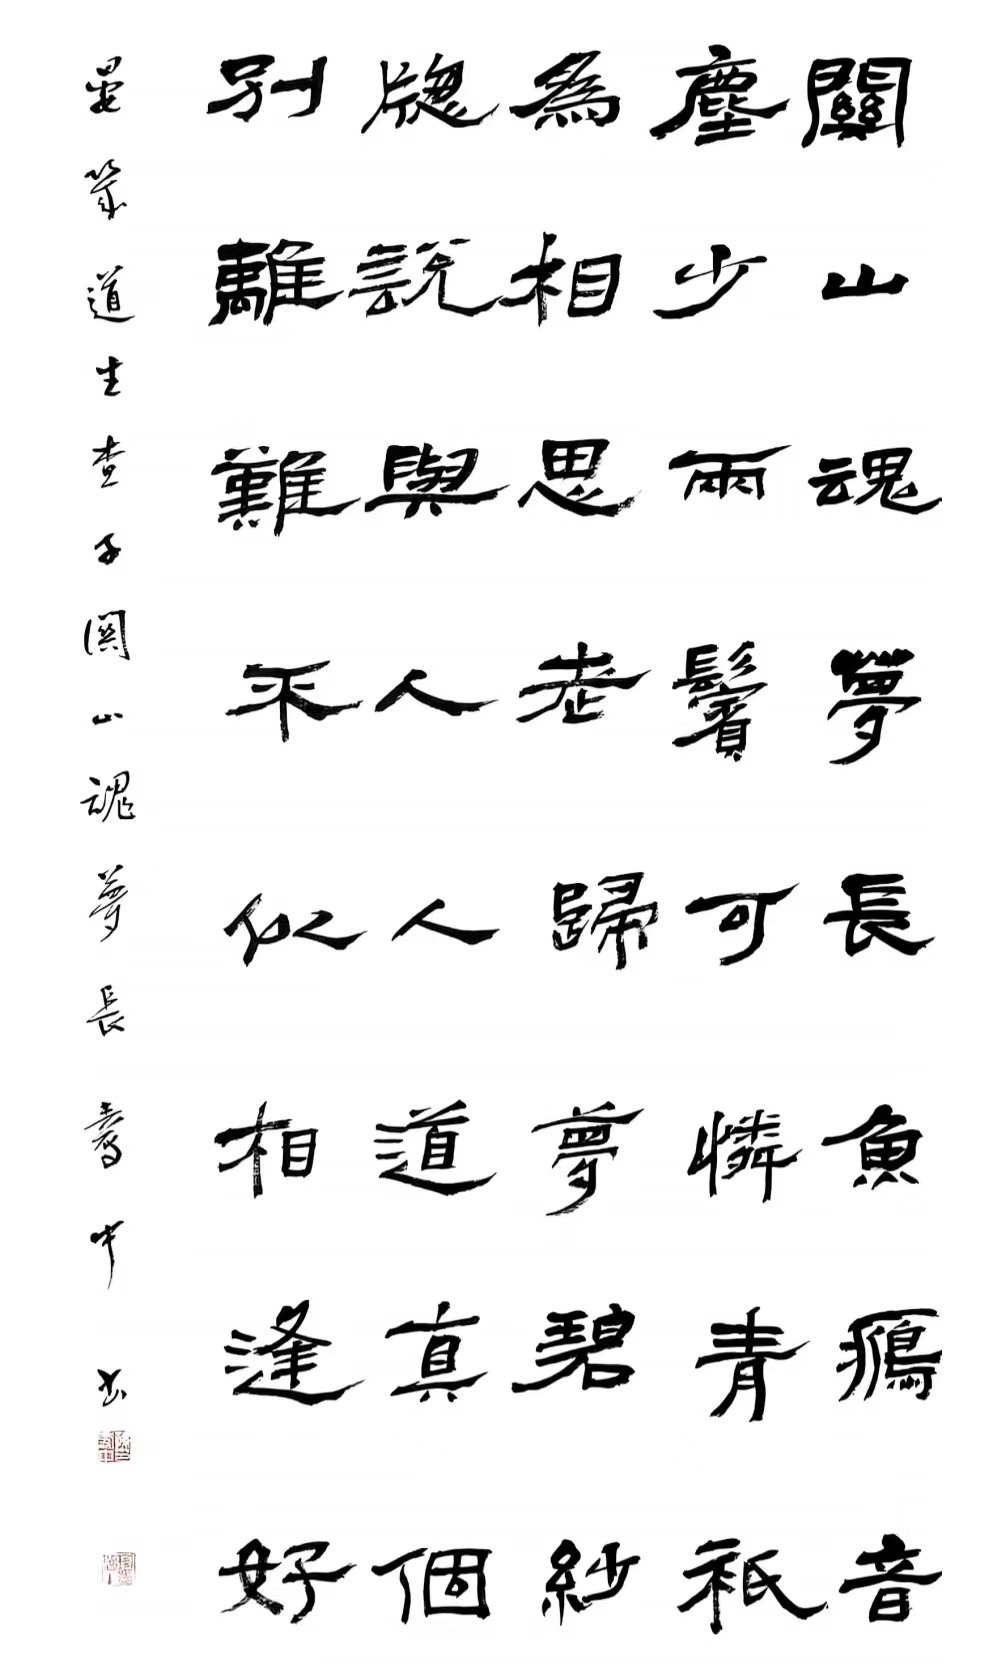 關山魂夢長魚鴈音
塵少兩鬢可憐青祇
為相思老歸夢碧紗
牎說與人人道真個
別離難不似相逢好
晏幾道生查子關山魂夢長 中書